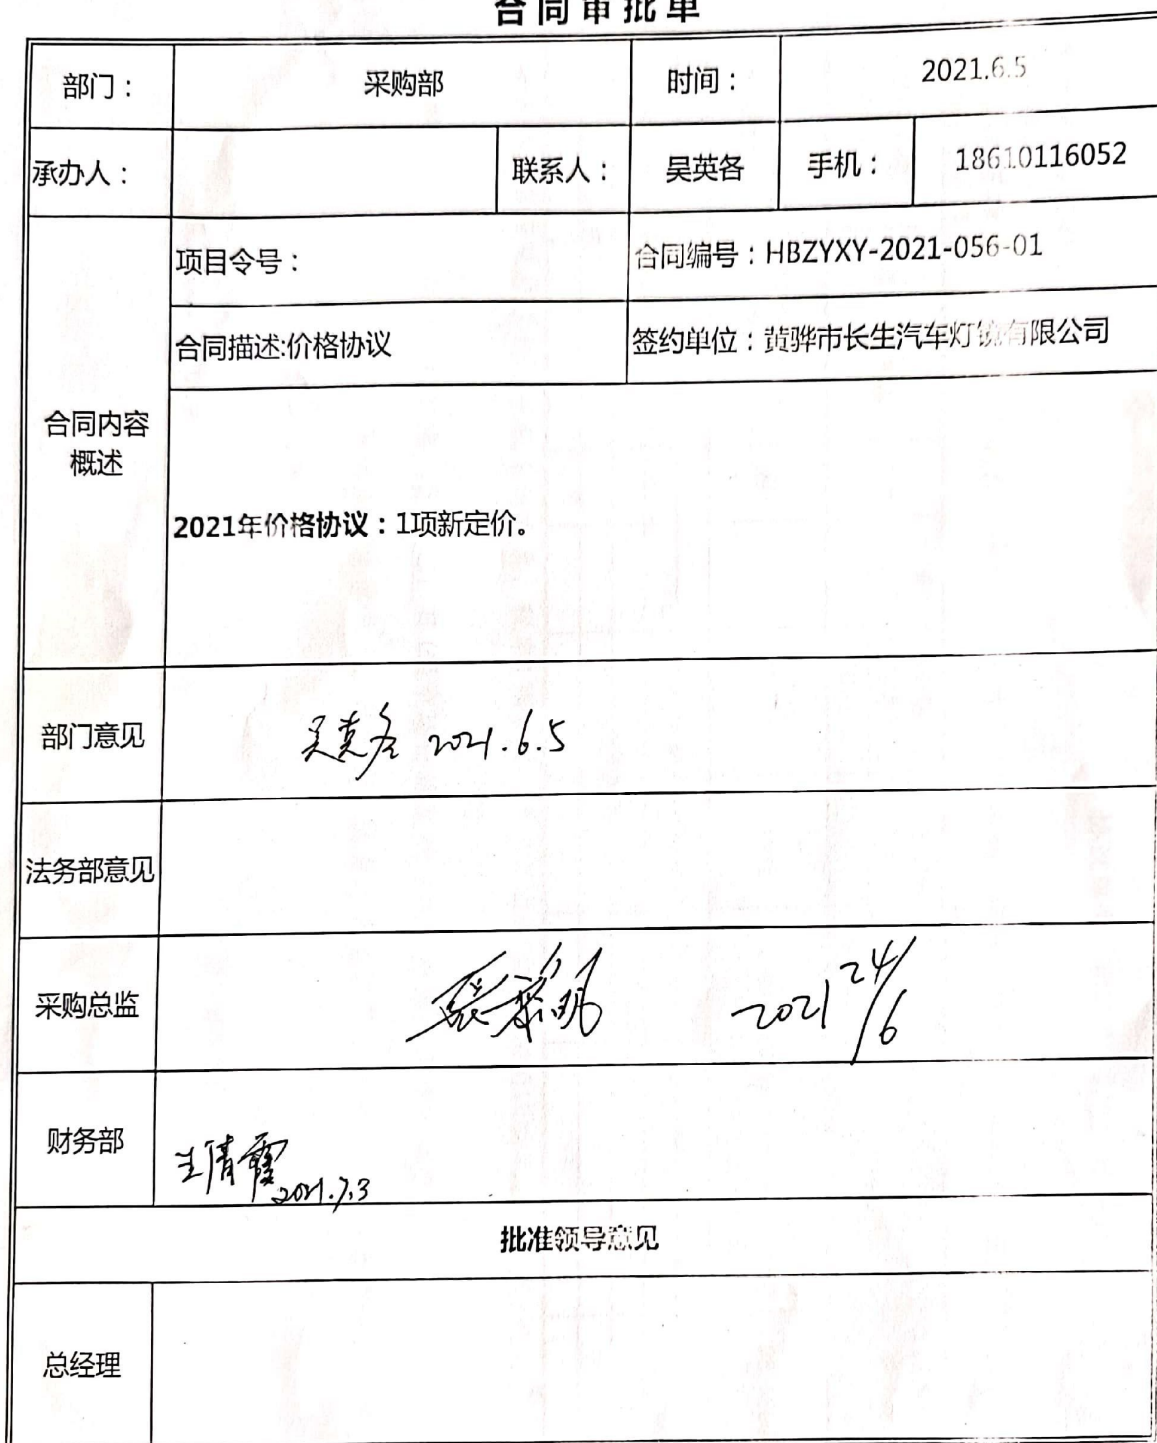 合同审批单
部门： 采购部 时间： 2021.6.5
承办人： 联系人： 吴英各 手机： 18610116052
项目令号： 合同编号：HBZYXY-2021-056-01
合同描述:价格协议 签约单位：黄骅市长生汽车灯镜有限公司
合同内容
概述
2021年价格协议：1项新定价。
部门意见 吴英各 2021.6.5
法务部意见
采购总监 2021 24/6
财务部 王倩霞
2021.7.3
批准领导意见
总经理